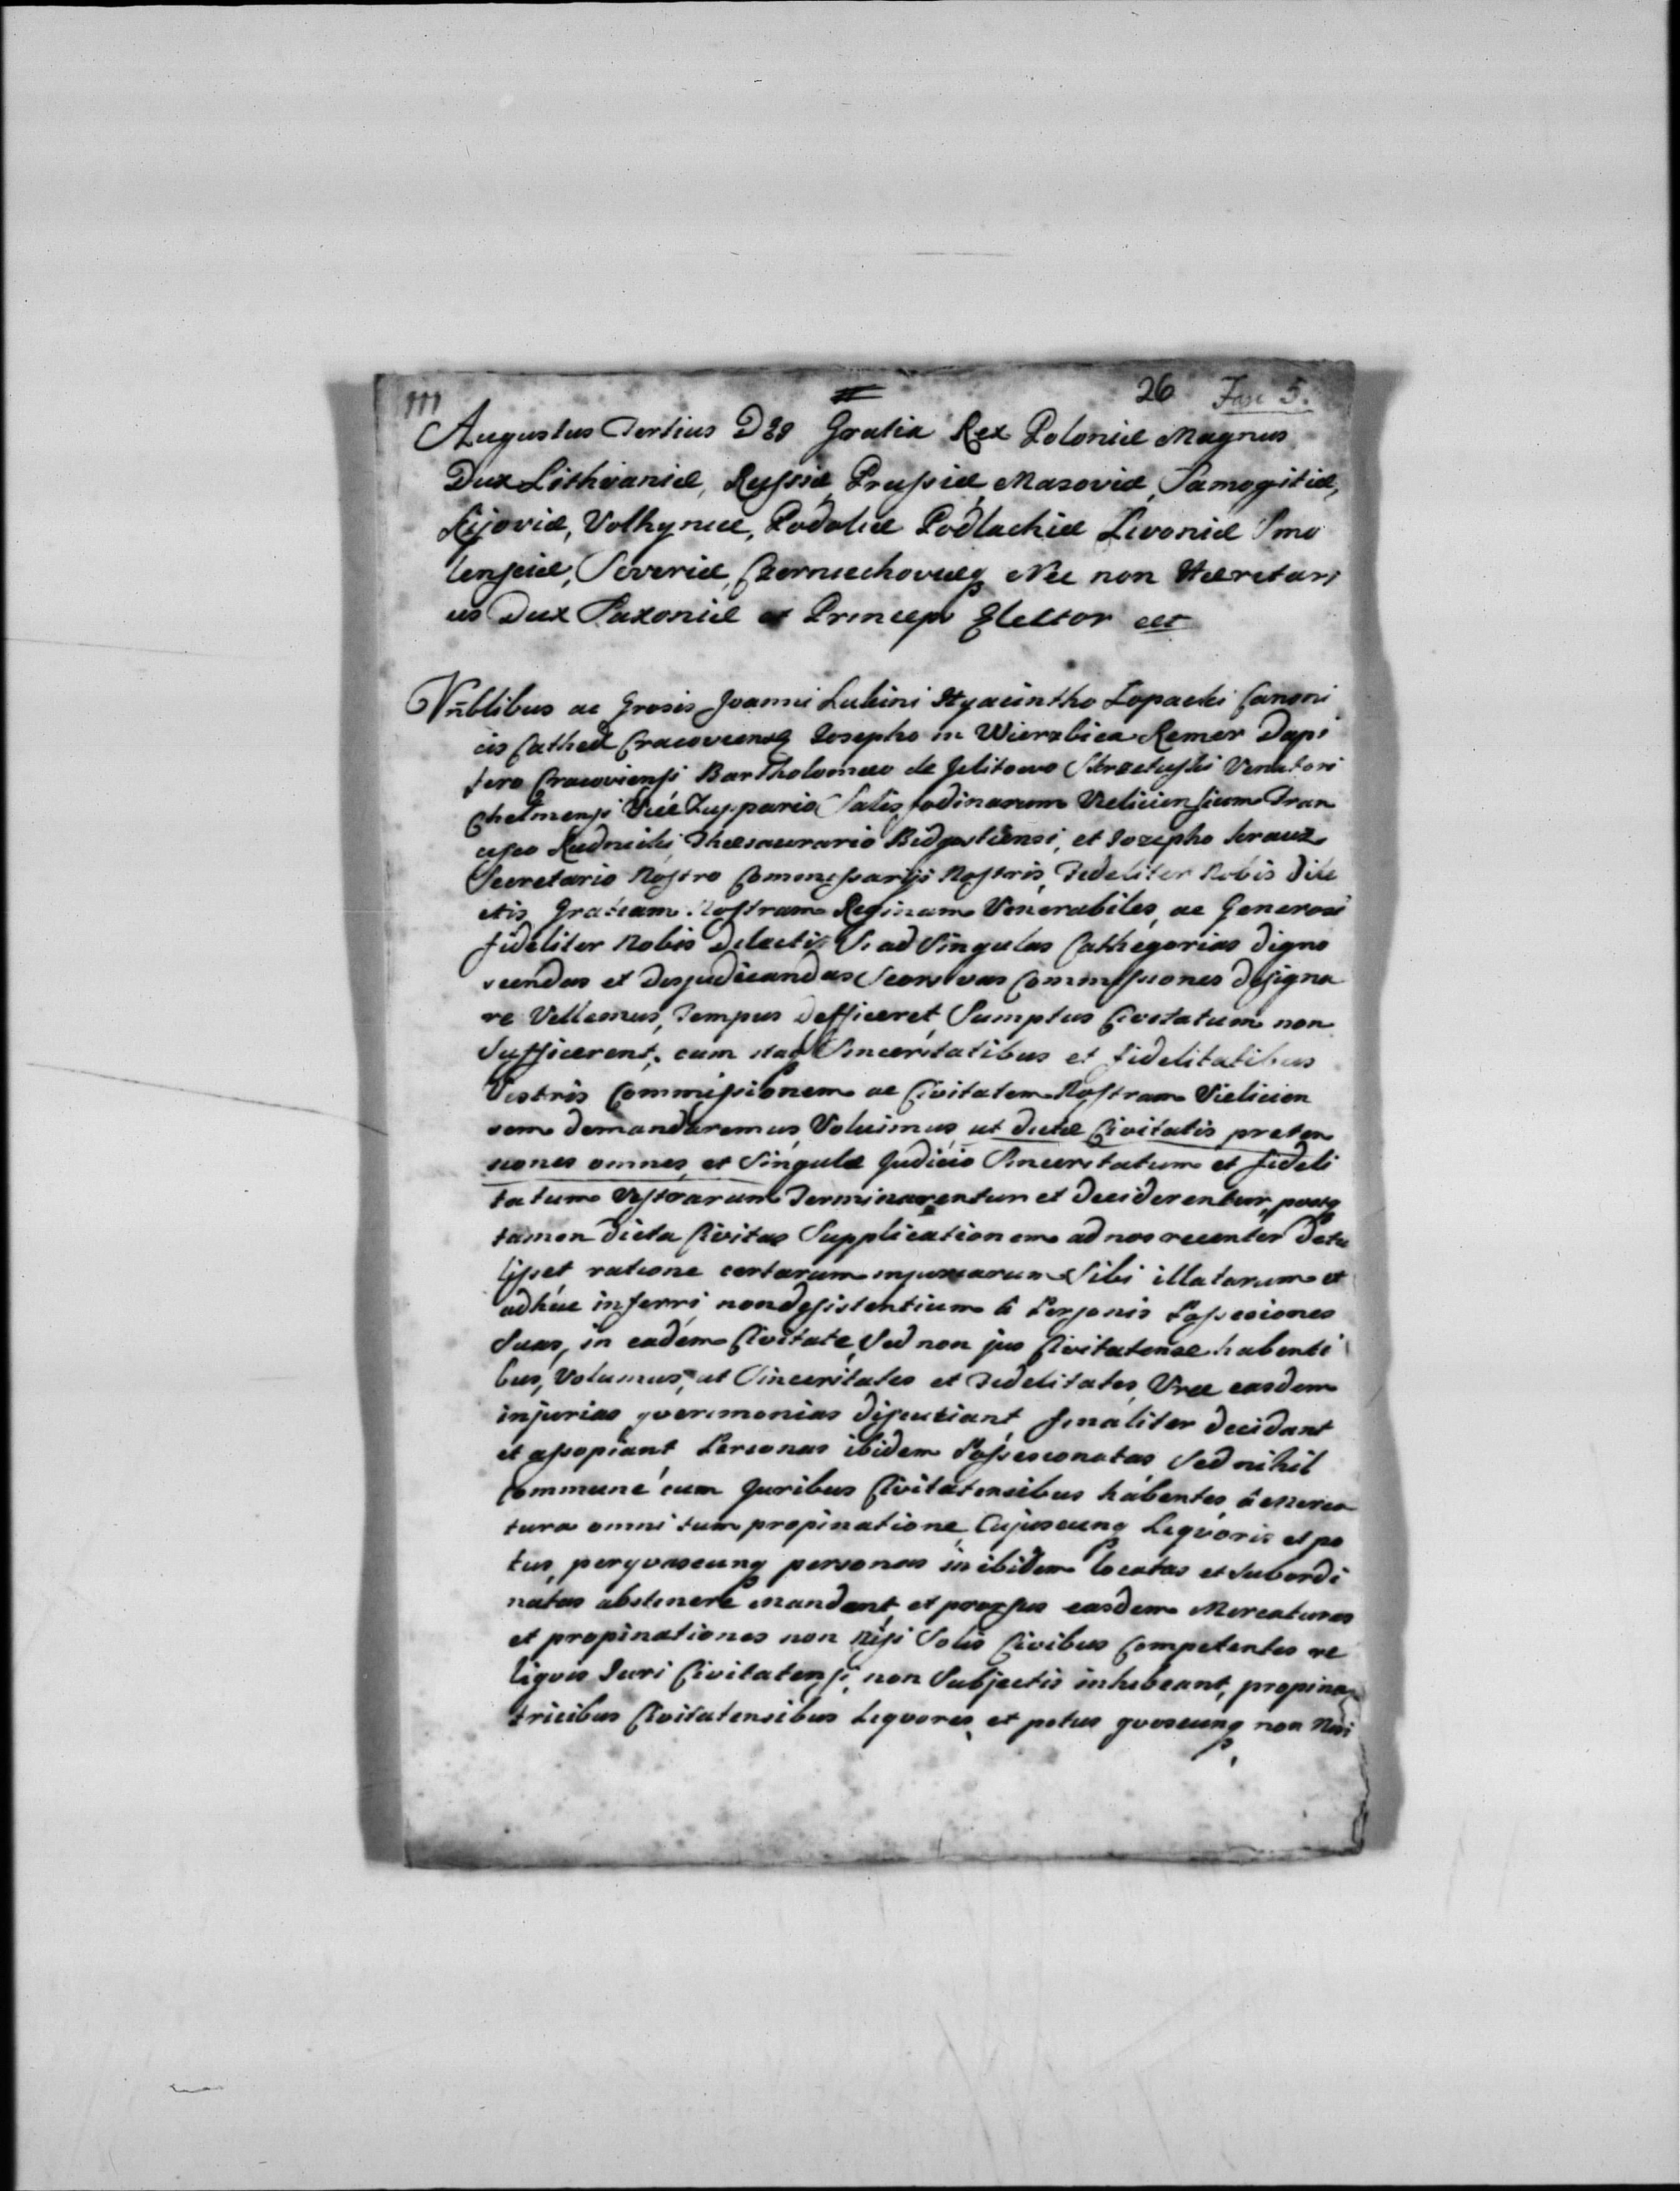 111 # 26 Fasc 5.
Augustus Tertius D39 Gratia Rex Poloniæ Magnus
Dux Lithvaniæ, Russiæ, Prussiæ, Mazoviæ, Samogitiæ,
Kijoviæ, Volhyniæ, Podoliæ Podlachiæ Livoniæ Smo
lensciæ, Severiæ, Czerniechoviæq Nec non Hæretari
us Dux Saxoniæ et Princeps Elector ect
Vnblibus ac Grosis Joanni Lukini Hyacintho Łopacki Canoni
cis Cathed Cracoviensq Josepho in Wierzbica Remer Dapi
fero Cracoviensi Bartholomæo de Jelitowo Strzetuski Venatori
Chelmensi Vice Zuppario Salis fodinarum Vieliciensium Fran
cisco Rudnicki Thesaurario Bidgostiensi, et Jozepho Krauz
Secretario Nostro Commissarijs Nostris, Fideliter Nobis Dile
ctis Gratiam Nostram Regiam Venerabiles ac Generosi
fideliter Nobis Delecti Si ad Singulas Cathegorias digno
scendas et Disjudicandas Seorsivas Commissiones designa
re Vellemus, Tempus Defficeret Sumptus Civitatum non
Sufficerent, cum itaq Sinceritatibus et fidelitatibus
Vestris Commissionem ac Civitatem Nostram Vielicien
sem demandaremus, Voluimus ut dictæ Civitatis preten
siones omnes, et Singulæ Judicio Sinceritatum et fideli
tatum Vestrarum Terminarentur et deciderentur,
tamen dicta Civitas Supplicationem ad nos recenter Detu
lisset ratione certarum injuriarum Sibi illatarum et
adhuc inferri non desistentium â Personis Possesiones
Suas, in eadem Civitate, Sed non jus Civitatense habenti
bus, Volumus, ut Sinceritates et Fidelitates Vræ easdem
injurias qverimonias discutiant, finaliter decidant
et assopiant Personas ibidem Possesionatas Sed nihil
commune cum Juribus Civitatensibus habentes, â merca
tura omni tum propinatione, Cujuscunq Liqvoris et po
tus, perqvascunq personas inibidem locatas et Subordi
natas abstinere mandent, et prorsus easdem Mercaturas
et propinationes non nisi Solis Civibus Competentes re
liqvis Juri Civitatensi, non Subjectis inhibeant, propina
tricibus Civitatensibus Liqvores, et potus qvoscunq non Nisi